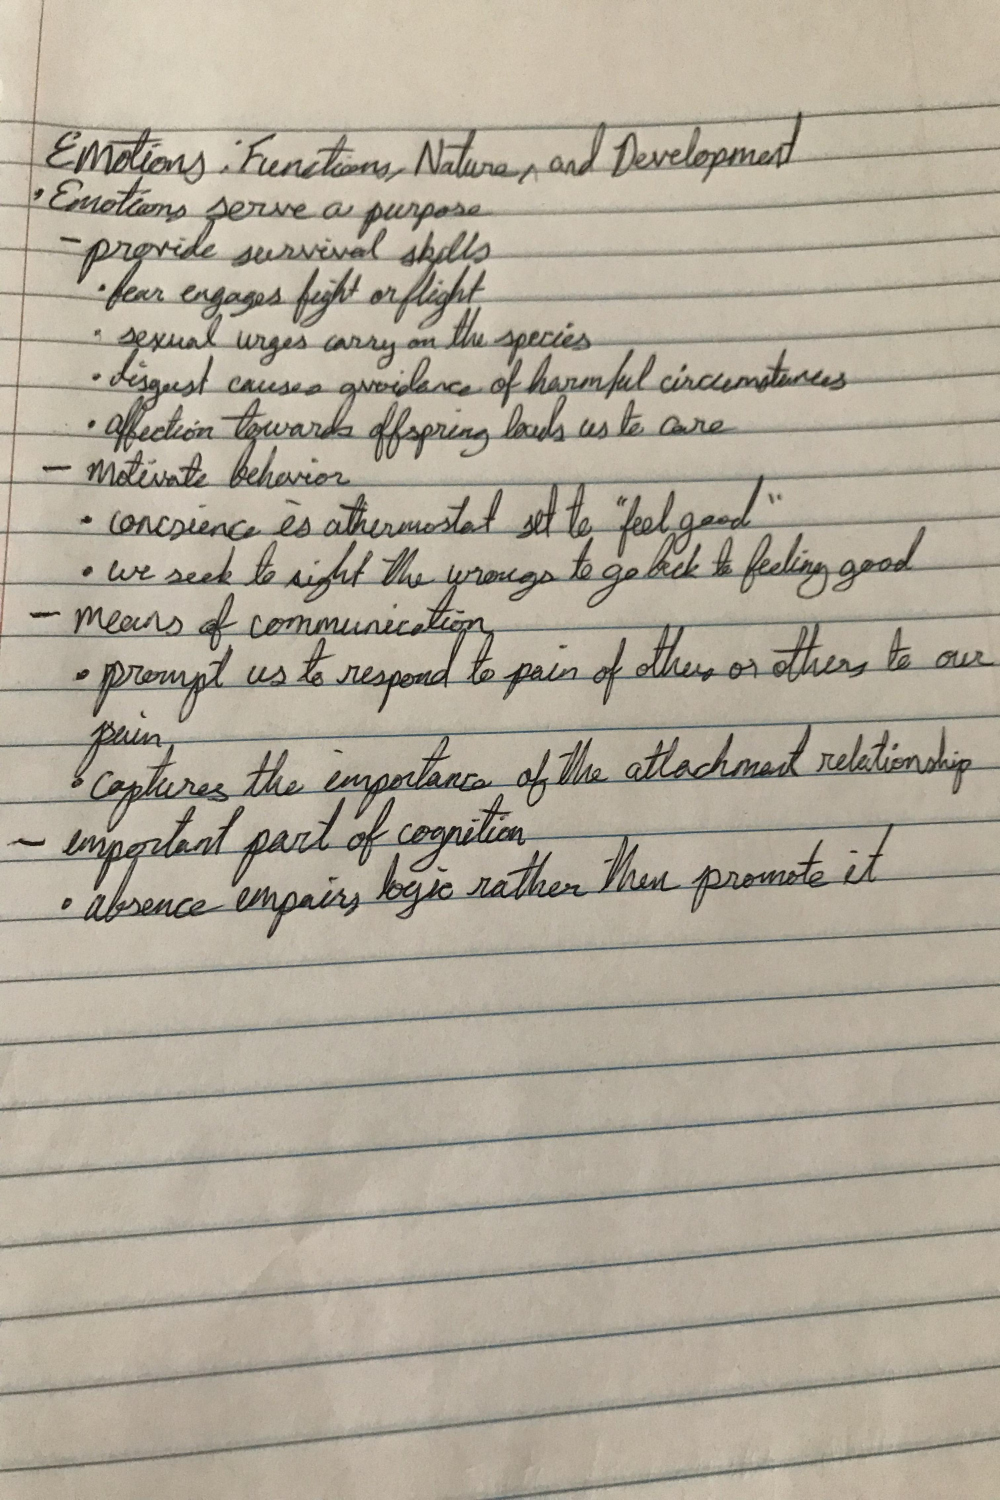 Emotions: Functions, Nature, and Development
• Emotions serve a purpose
– provide survival skills
• fear engages fight or flight
• sexual urges carry on the species
• disgust causes avoidance of harmful circumstances
• affection towards offspring leads us to care
– Motivate behavior
• concsience is a thermostat set to "feel good"
• we seek to right the wrongs to go back to feeling good
– means of communication
• prompt us to respond to pain of others or others to our
pain
• captures the importance of the attachment relationship
– important part of cognition
• absence impairs logic rather then promote it